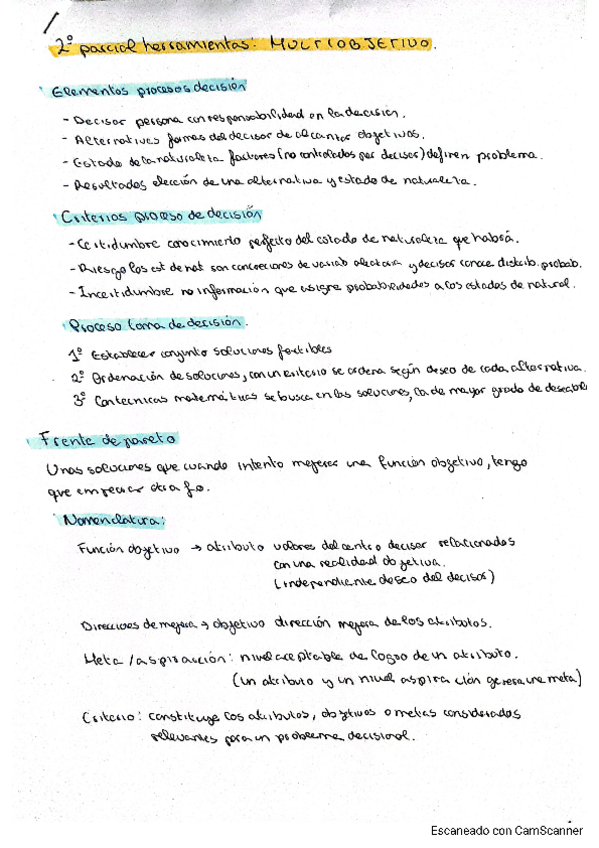 2º parcial herramientas: MULTIOBJETIVO.
Elementos procesos decisión
- Decisor persona con responsabilidad en la decisión.
- Alternativas formas del decisor de alcanzar objetivos.
- Estado de la naturaleza factores (no controlados por decisor) definen problema.
- Resultados elección de una alternativa y estado de naturaleza.
Criterios proceso de decisión
- Certidumbre conocimiento perfecto del estado de naturaleza que habrá.
- Riesgo los est de nat son concreciones de variab aleatoria y decisor conoce distrib. probab.
- Incertidumbre no información que asigne probabilidades a los estados de natural.
Proceso toma de decisión.
1º Establecer conjunto soluciones factibles
2º Ordenación de soluciones, con un criterio se ordena según deseo de cada alternativa.
3º Con tecnicas matemáticas se busca en las soluciones, la de mayor grado de deseabil
Frente de pareto
Unas soluciones que cuando intento mejorar una función objetivo, tengo
que empeorar otra f.o.
Nomenclatura:
Función objetivo → atributo valores del centro decisor relacionados
con una realidad objetiva.
(independiente deseo del decisor)
Direcciones de mejora → objetivo dirección mejora de los atributos.
Meta / aspiración: nivel aceptable de logro de un atributo.
(un atributo y un nivel aspiración genera una meta)
Criterio: constituye los atributos, objetivos o metas considerados
relevantes para un problema decisional.
Escaneado con CamScanner